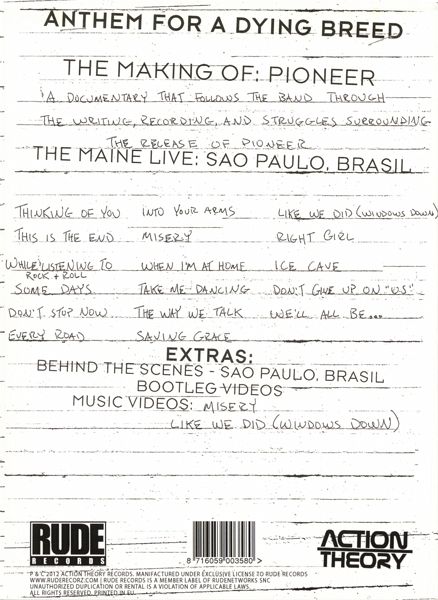 ANTHEM FOR A DYING BREED
THE MAKING OF: PIONEER
A DOCUMENTARY THAT FOLLOWS THE BAND THROUGH
THE WRITING, RECORDING, AND STRUGGLES SURROUNDING
THE RELEASE OF PIONEER
THE MAINE LIVE: SAO PAULO, BRASIL
THINKING OF YOU INTO YOUR ARMS LIKE WE DID (WINDOWS DOWN)
THIS IS THE END MISERY RIGHT GIRL
WHILE LISTENING TO ROCK + ROLL WHEN I'M AT HOME ICE CAVE
SOME DAYS TAKE ME DANCING DON'T GIVE UP ON "US"
DON'T STOP NOW THE WAY WE TALK WE'LL ALL BE...
EVERY ROAD SAVING GRACE
EXTRAS:
BEHIND THE SCENES - SAO PAULO, BRASIL
BOOTLEG VIDEOS
MUSIC VIDEOS: MISERY
LIKE WE DID (WINDOWS DOWN)
RUDE
RECORDS
8 716059 003580 >
ACTION
THEORY
P & C 2012 ACTION THEORY RECORDS. MANUFACTURED UNDER EXCLUSIVE LICENSE TO RUDE RECORDS
WWW.RUDERECORZ.COM | RUDE RECORDS IS A MEMBER LABEL OF RUDENETWORKS SNC
UNAUTHORIZED DUPLICATION OR RENTAL IS A VIOLATION OF APPLICABLE LAWS.
ALL RIGHTS RESERVED. PRINTED IN EU